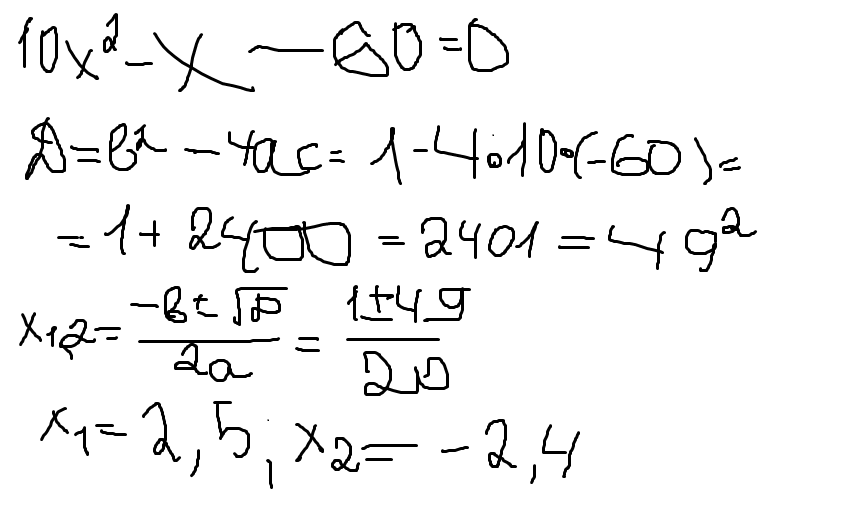 10x² - x - 60 = 0
D = b² - 4ac = 1 - 4·10·(-60) =
= 1 + 2400 = 2401 = 49²
x₁,₂ = (-b ± √D)/(2a) = (1 ± 49)/20
x₁ = 2,5; x₂ = -2,4